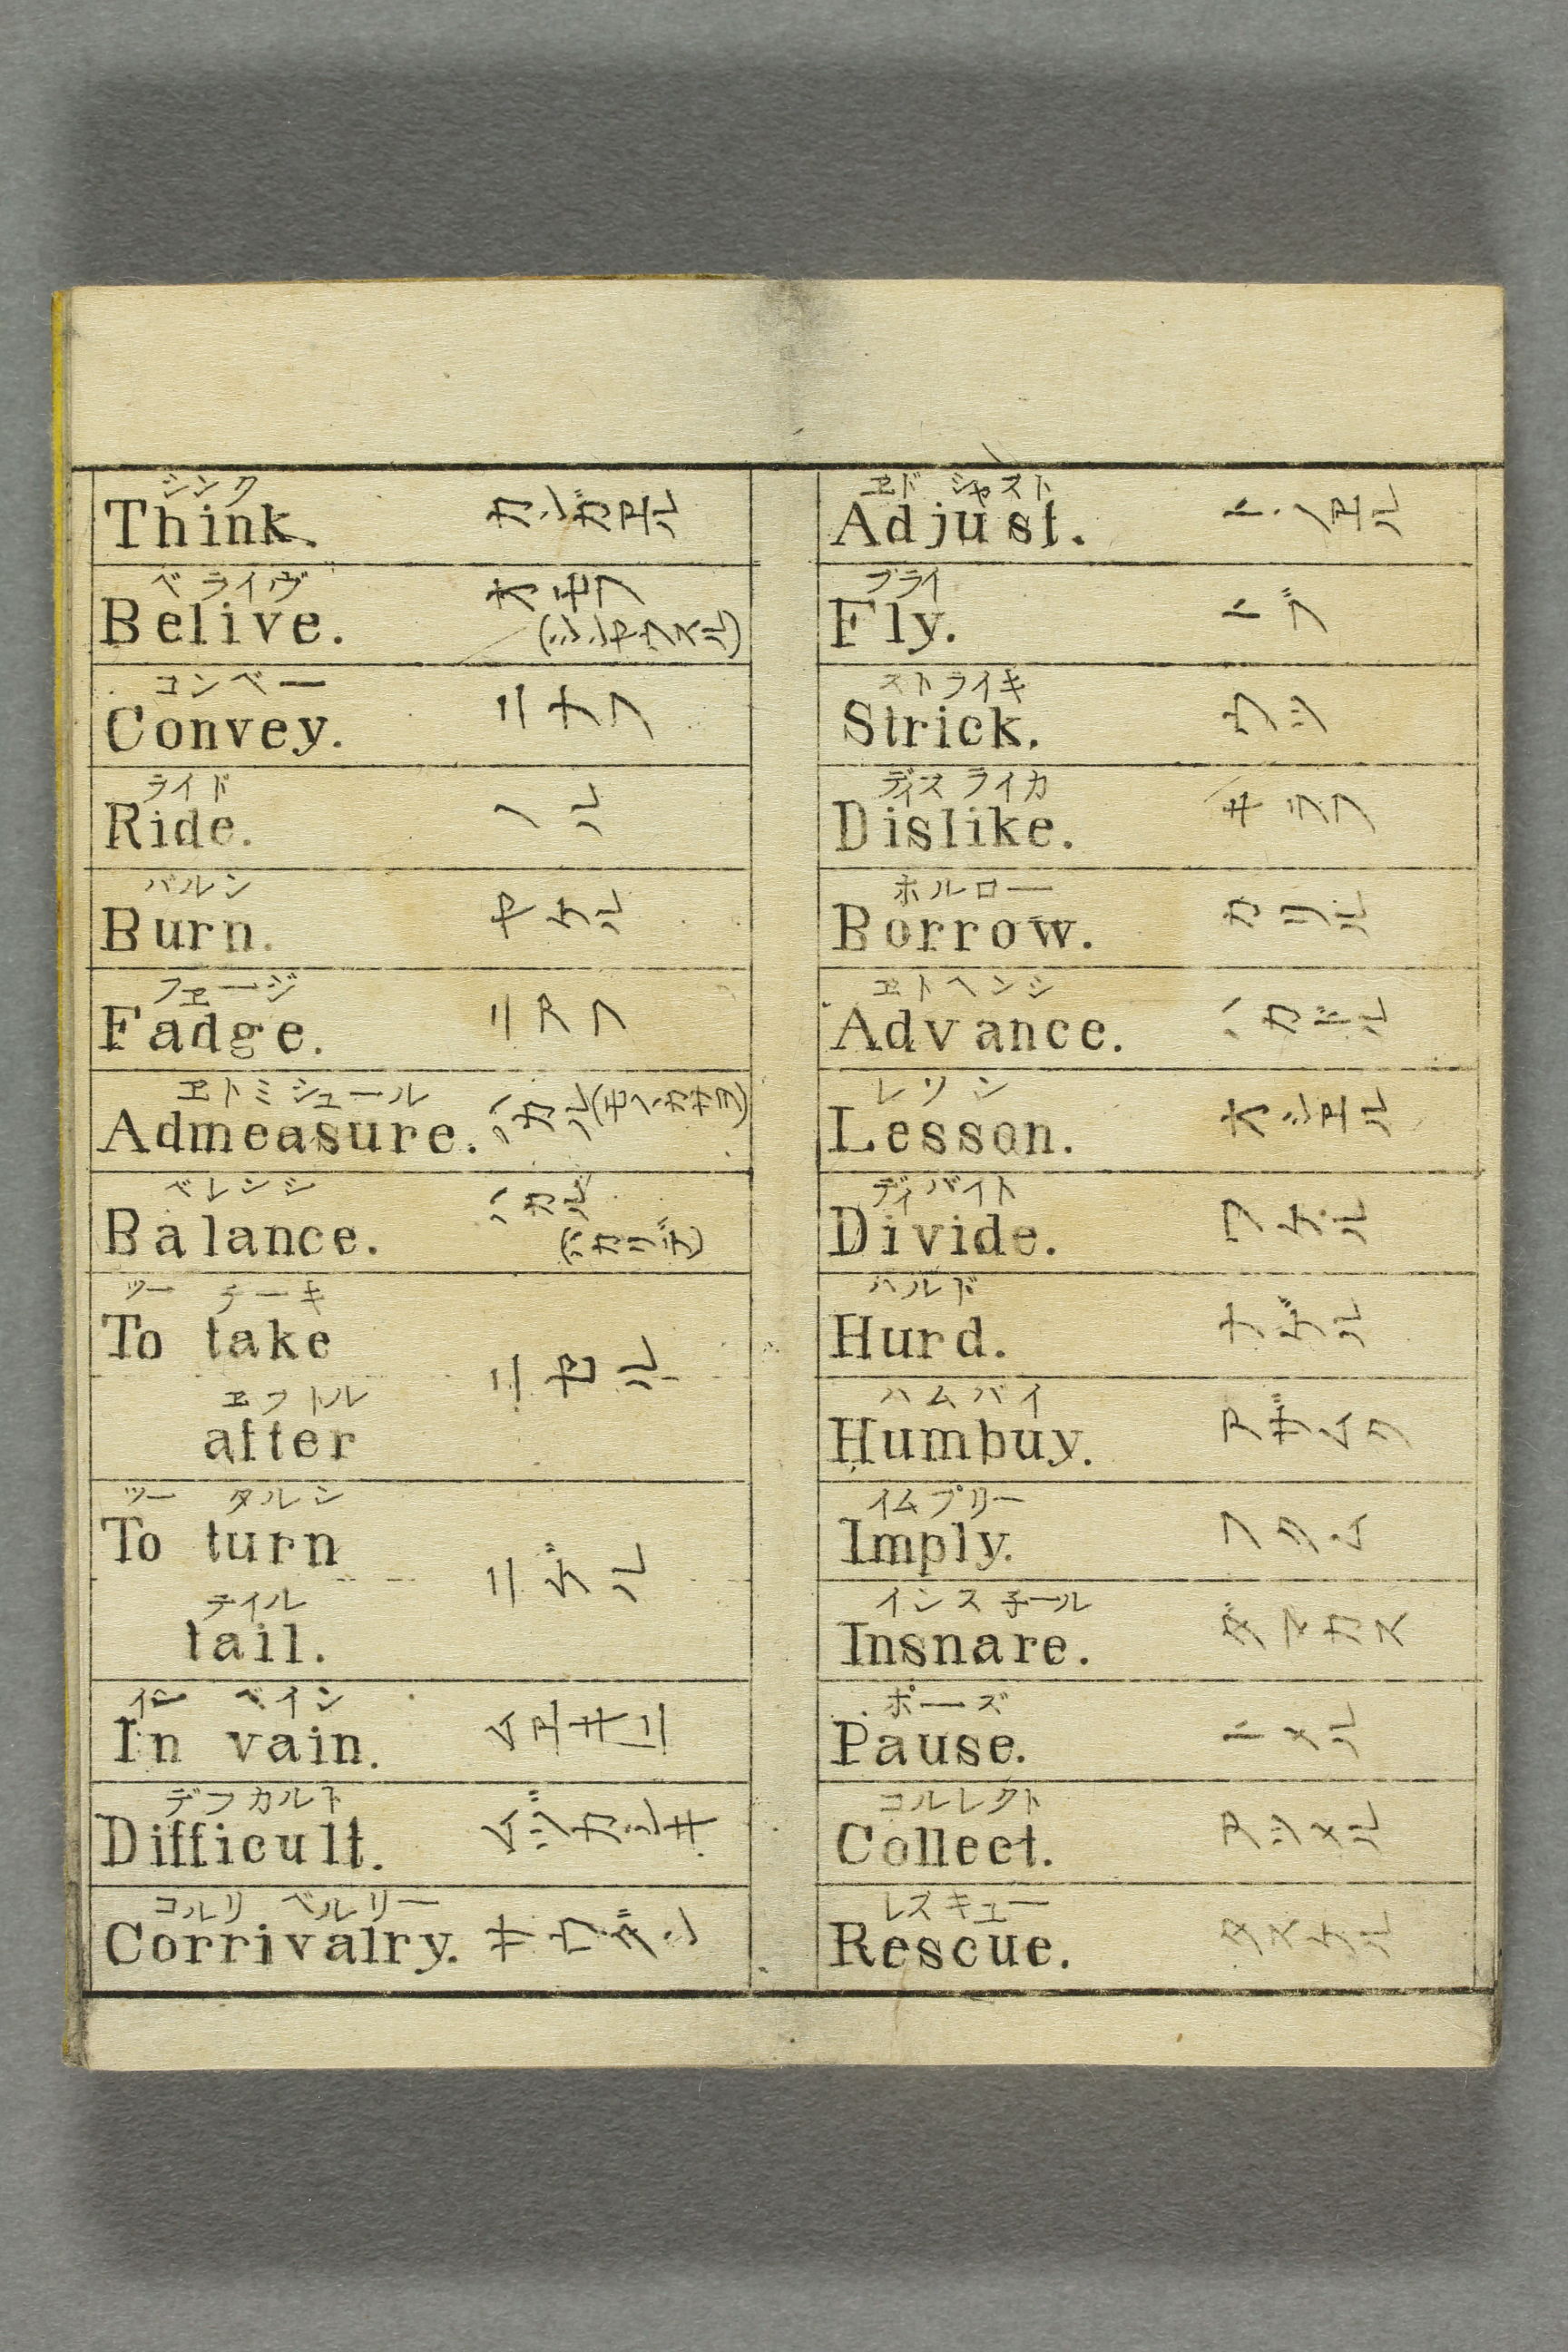 シンク
Think. カンガヱル
ベライヴ
Belive. オモフ
コンベー
Convey. ニナフ
ライド
Ride. ノル
バルン
Burn. ヤケル
フヱージ
Fadge. ニアフ
ヱトミシュール
Admeasure. ハカル
ベレンシ
Balance. ハカル
(ハカリデ)
ツー テーキ
To take
ニセル
ヱフトル
after
ツー タルン
To turn
ニゲル
テイル
tail.
イン ベイン
In vain.
デフカルト
Difficult.
コルリ ベルリー
Corrivalry.
ヱドジャスト
Adjust.
フライ
Fly. トブ
ストライキ
Strick. ウツ
ディスライカ
Dislike.
ホルロー
Borrow. カリル
ヱトヘンシ
Advance. ハカドル
レソン
Lesson. オシヱル
ディバイト
Divide. ワケル
ハルド
Hurd. ナゲル
ハムバイ
Humbuy.
イムプリー
Imply. フクム
インス子ール
Insnare.
ポーズ
Pause. トメル
コルレクト
Collect. アツメル
レズキュー
Rescue. タスケル